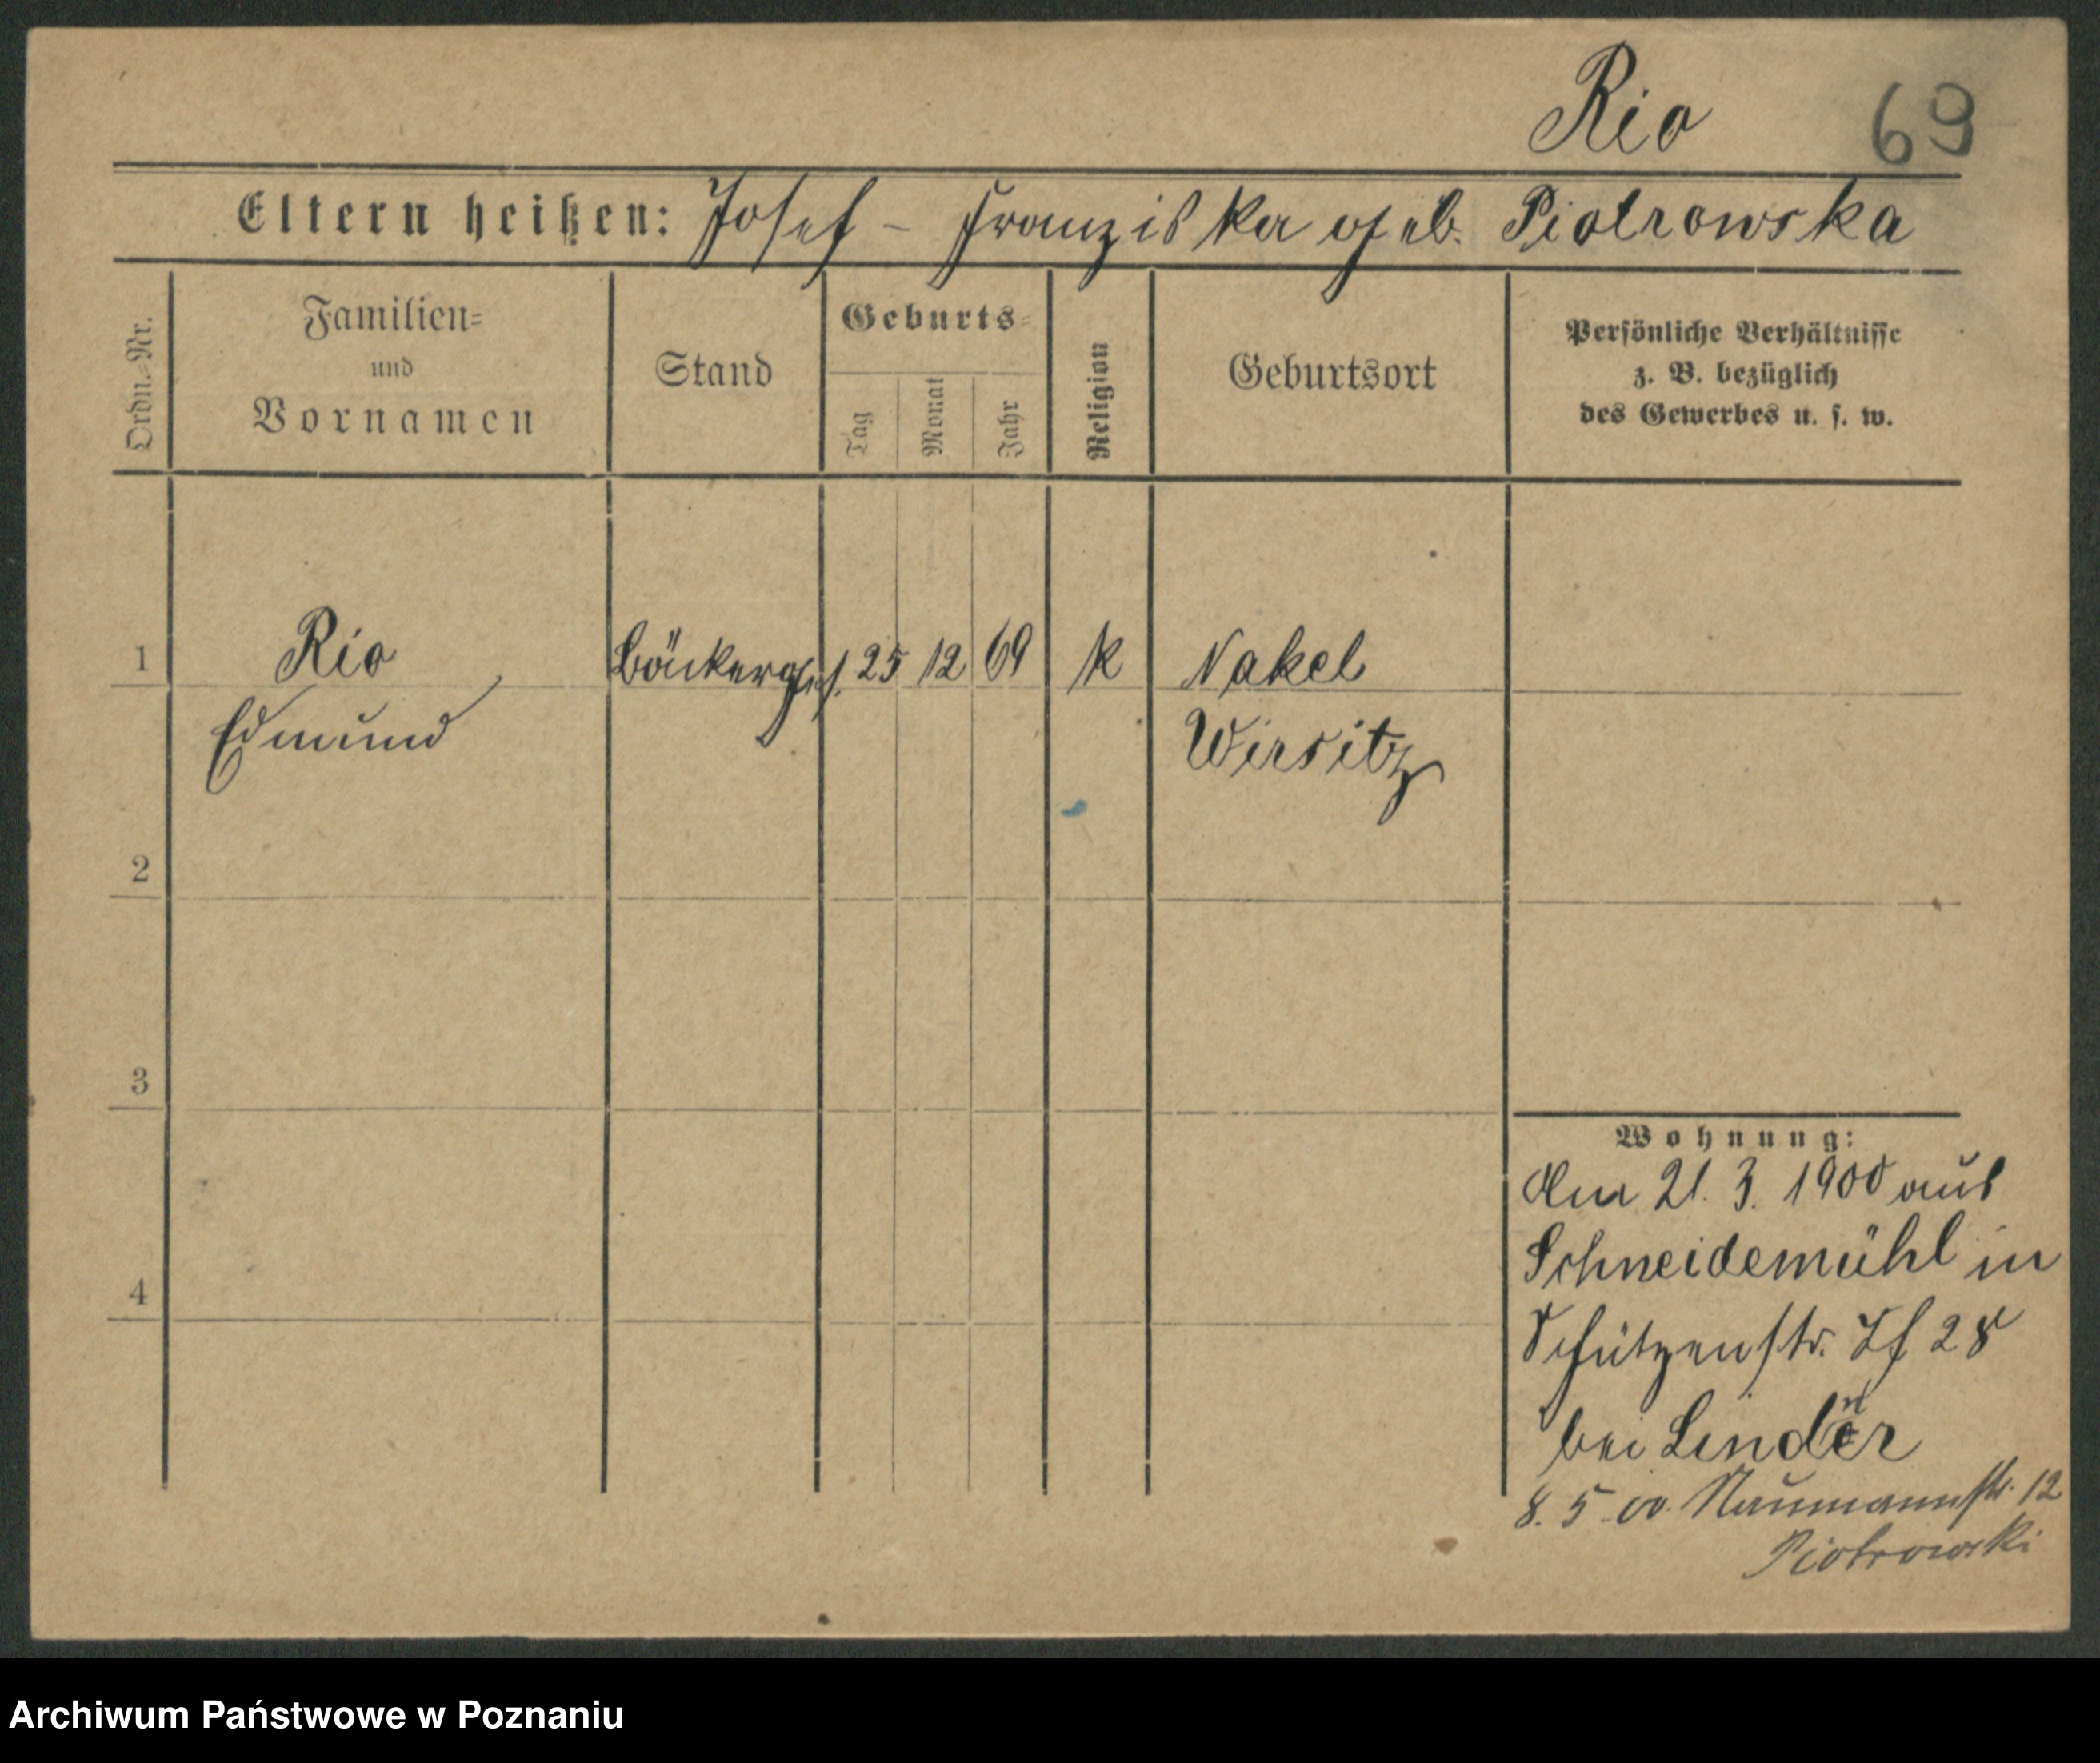 Rio 69
Eltern heißen: Josef – Franziska geb. Piotrowska
Ordn.-Nr.
Familien-
und
Vornamen
Stand
Geburts-
Tag
Monat
Jahr
Religion
Geburtsort
Persönliche Verhältnisse
z. B. bezüglich
des Gewerbes u. s. w.
1 Rio Bäckerges. 25 12 69 k Nakel
Edmund Wirsitz
2
3
4
Wohnung:
Am 21. 3. 1900 aus
Schneidemühl in
Schützenstr. 28
bei
8. 5. 00. Naumannstr. 12
Piotrowski
Archiwum Państwowe w Poznaniu